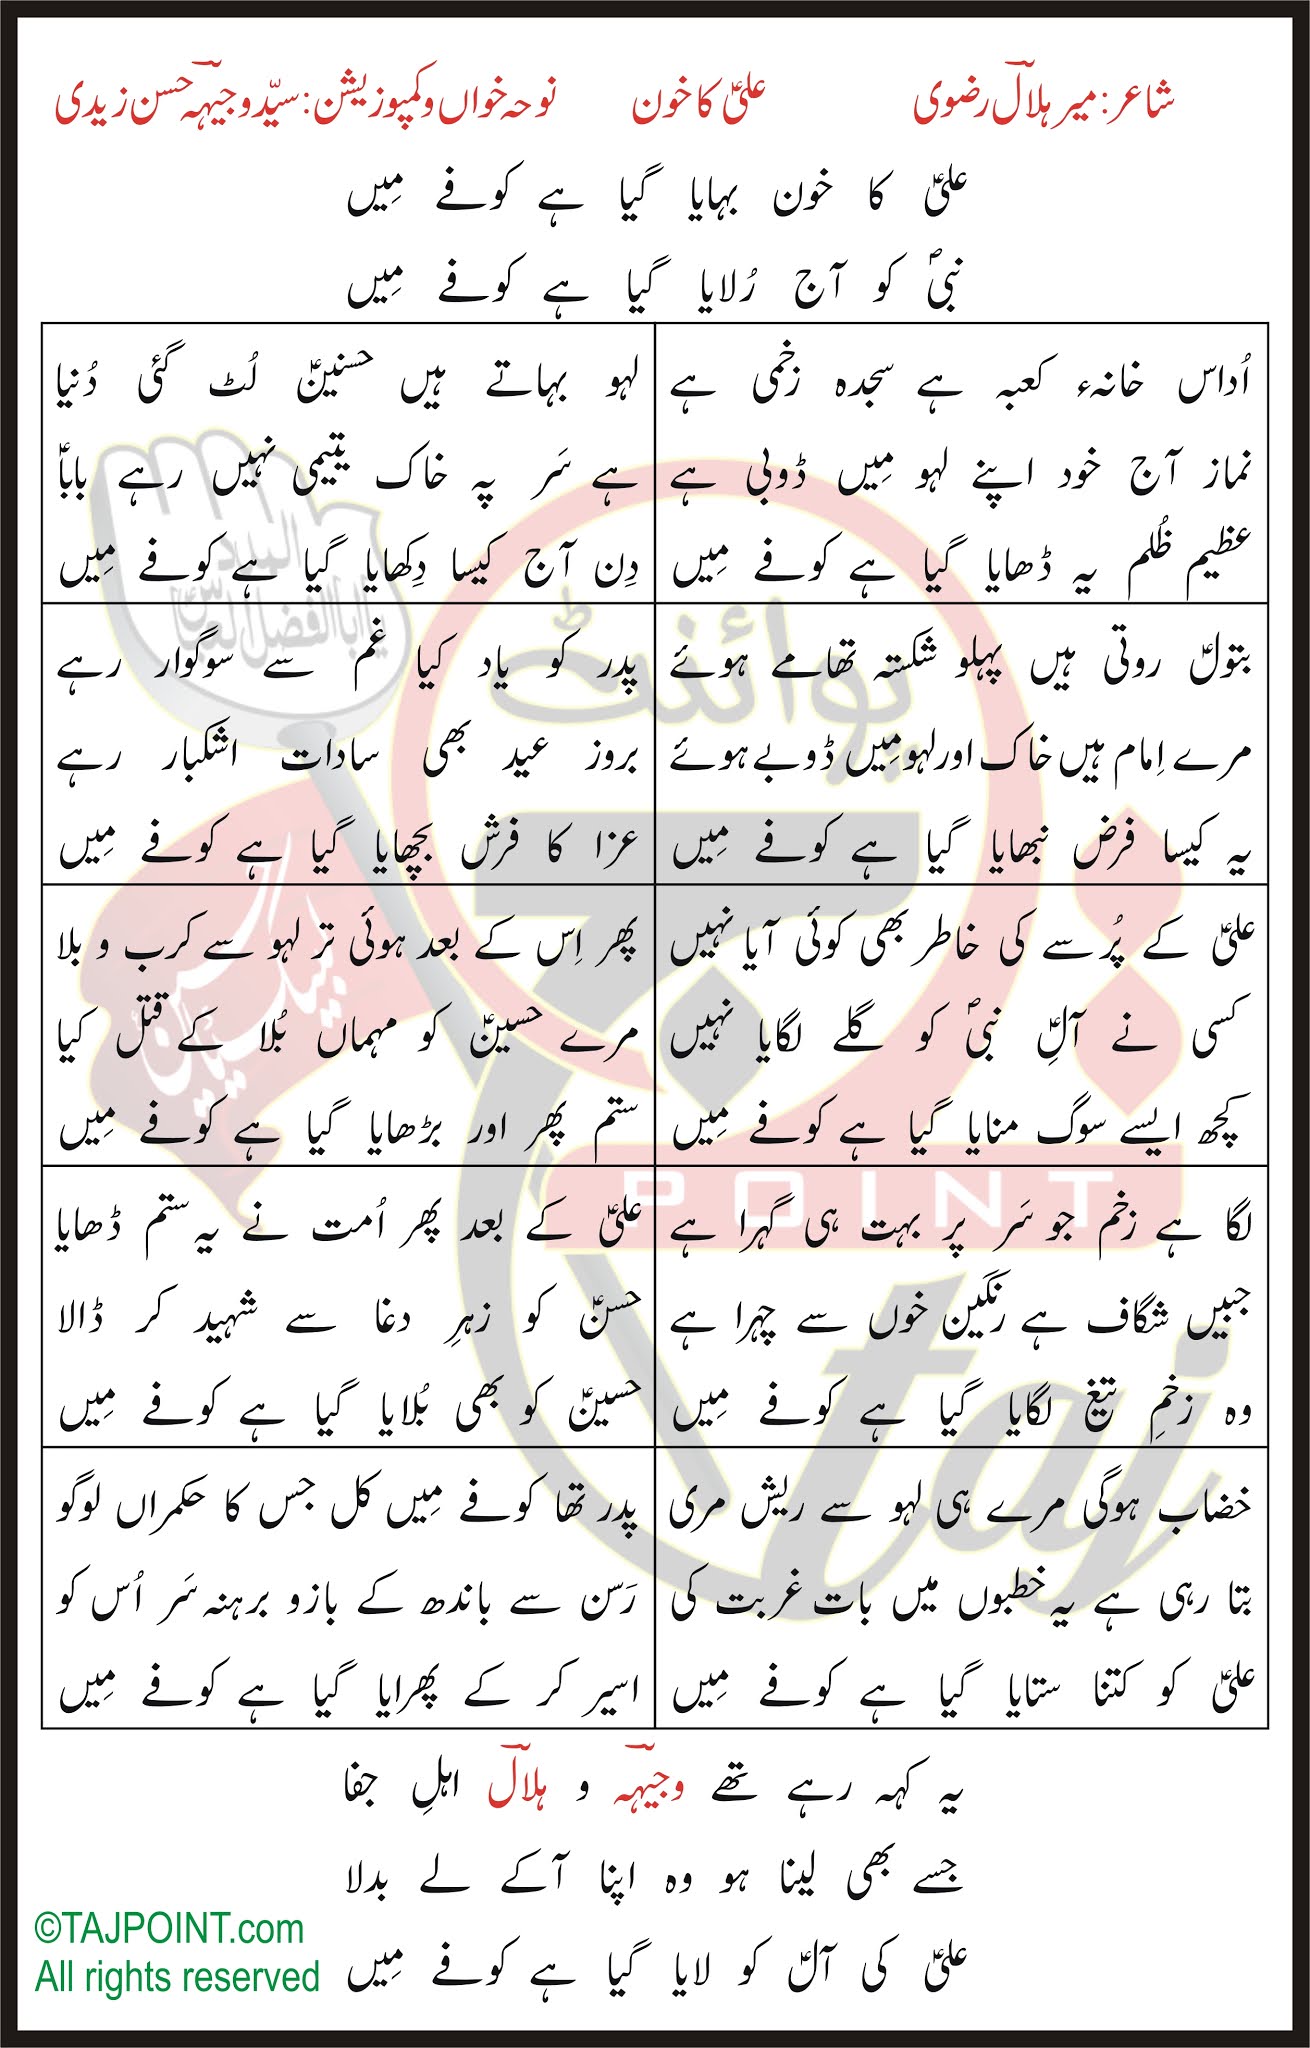 شاعر: میر ہلالؔ رضوی
علیؑ کا خون
نوحہ خواں و کمپوزیشن: سیّد وجیہہؔ حسن زیدی
علیؑ کا خون بہایا گیا ہے کوفے مِیں
نبیؐ کو آج رُلایا گیا ہے کوفے مِیں
اُداس خانہء کعبہ ہے سجدہ زخمی ہے
نماز آج خود اپنے لہو مِیں ڈوبی ہے
عظیم ظُلم یہ ڈھایا گیا ہے کوفے مِیں
لہو بہاتے ہیں حسنینؑ لُٹ گئی دُنیا
ہے سَر پہ خاک یتیمی نہیں رہے باباؑ
دِن آج کیسا دِکھایا گیا ہے کوفے مِیں
بتولؑ روتی ہیں پہلو شکستہ تھامے ہوئے
مرے اِمام ہیں خاک اور لہو مِیں ڈوبے ہوئے
یہ کیسا فرض نبھایا گیا ہے کوفے مِیں
پدر کو یاد کیا غم سے سوگوار رہے
بروز عید بھی سادات اشکبار رہے
عزا کا فرش بچھایا گیا ہے کوفے مِیں
علیؑ کے پُرسے کی خاطر بھی کوئی آیا نہیں
کسی نے آلِ نبیؐ کو گلے لگایا نہیں
کچھ ایسے سوگ منایا گیا ہے کوفے مِیں
پھر اِس کے بعد ہوئی تر لہو سے کرب و بلا
مرے حسینؑ کو مہماں بُلا کے قتل کیا
ستم پھر اور بڑھایا گیا ہے کوفے مِیں
لگا ہے زخم جو سَر پر بہت ہی گہرا ہے
جبیں شگاف ہے رنگین خوں سے چہرا ہے
وہ زخمِ تیغ لگایا گیا ہے کوفے مِیں
علیؑ کے بعد پھر اُمت نے یہ ستم ڈھایا
حسنؑ کو زہرِ دغا سے شہید کر ڈالا
حسینؑ کو بھی بُلایا گیا ہے کوفے مِیں
خضاب ہوگی مرے ہی لہو سے ریش مری
بتا رہی ہے یہ خطبوں میں بات غربت کی
علیؑ کو کتنا ستایا گیا ہے کوفے مِیں
پدر تھا کوفے مِیں کل جس کا حکمراں لوگو
رَسن سے باندھ کے بازو برہنہ سَر اُس کو
اسیر کر کے پھرایا گیا ہے کوفے مِیں
یہ کہہ رہے تھے وجیہہؔ و ہلالؔ اہلِ جفا
جسے بھی لینا ہو وہ اپنا آکے لے بدلا
علیؑ کی آلؑ کو لایا گیا ہے کوفے مِیں
©TAJPOINT.com
All rights reserved
پوائنٹ
تاج
POINT
taj